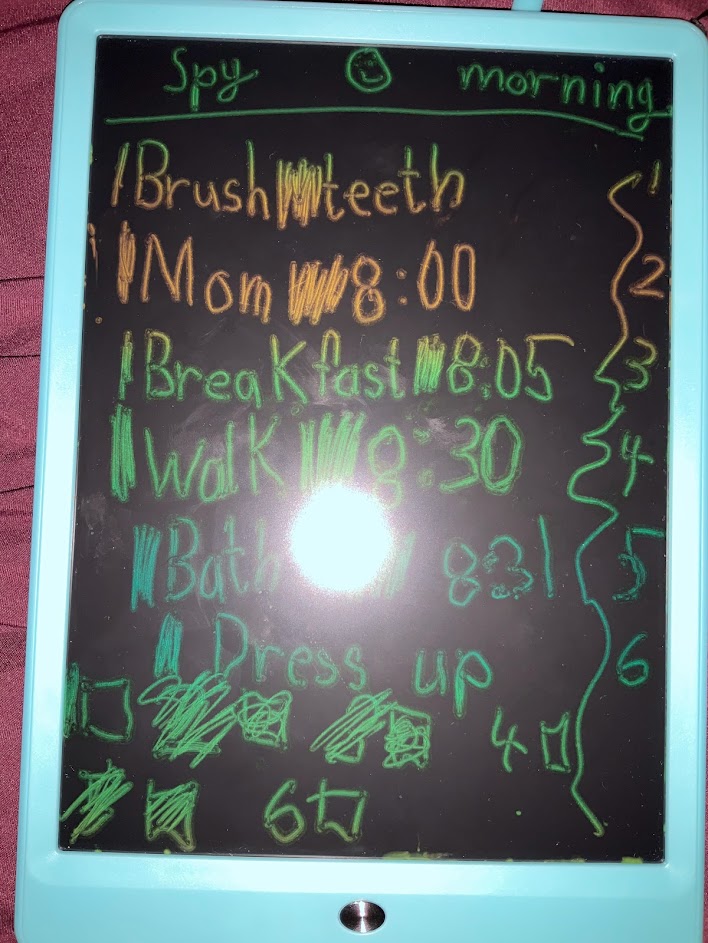 Spy morning
Brush teeth 1
Mom 8:00 2
Breakfast 8:05 3
Walk 8:30 4
Bath 8:31 5
Dress up 6
4
6